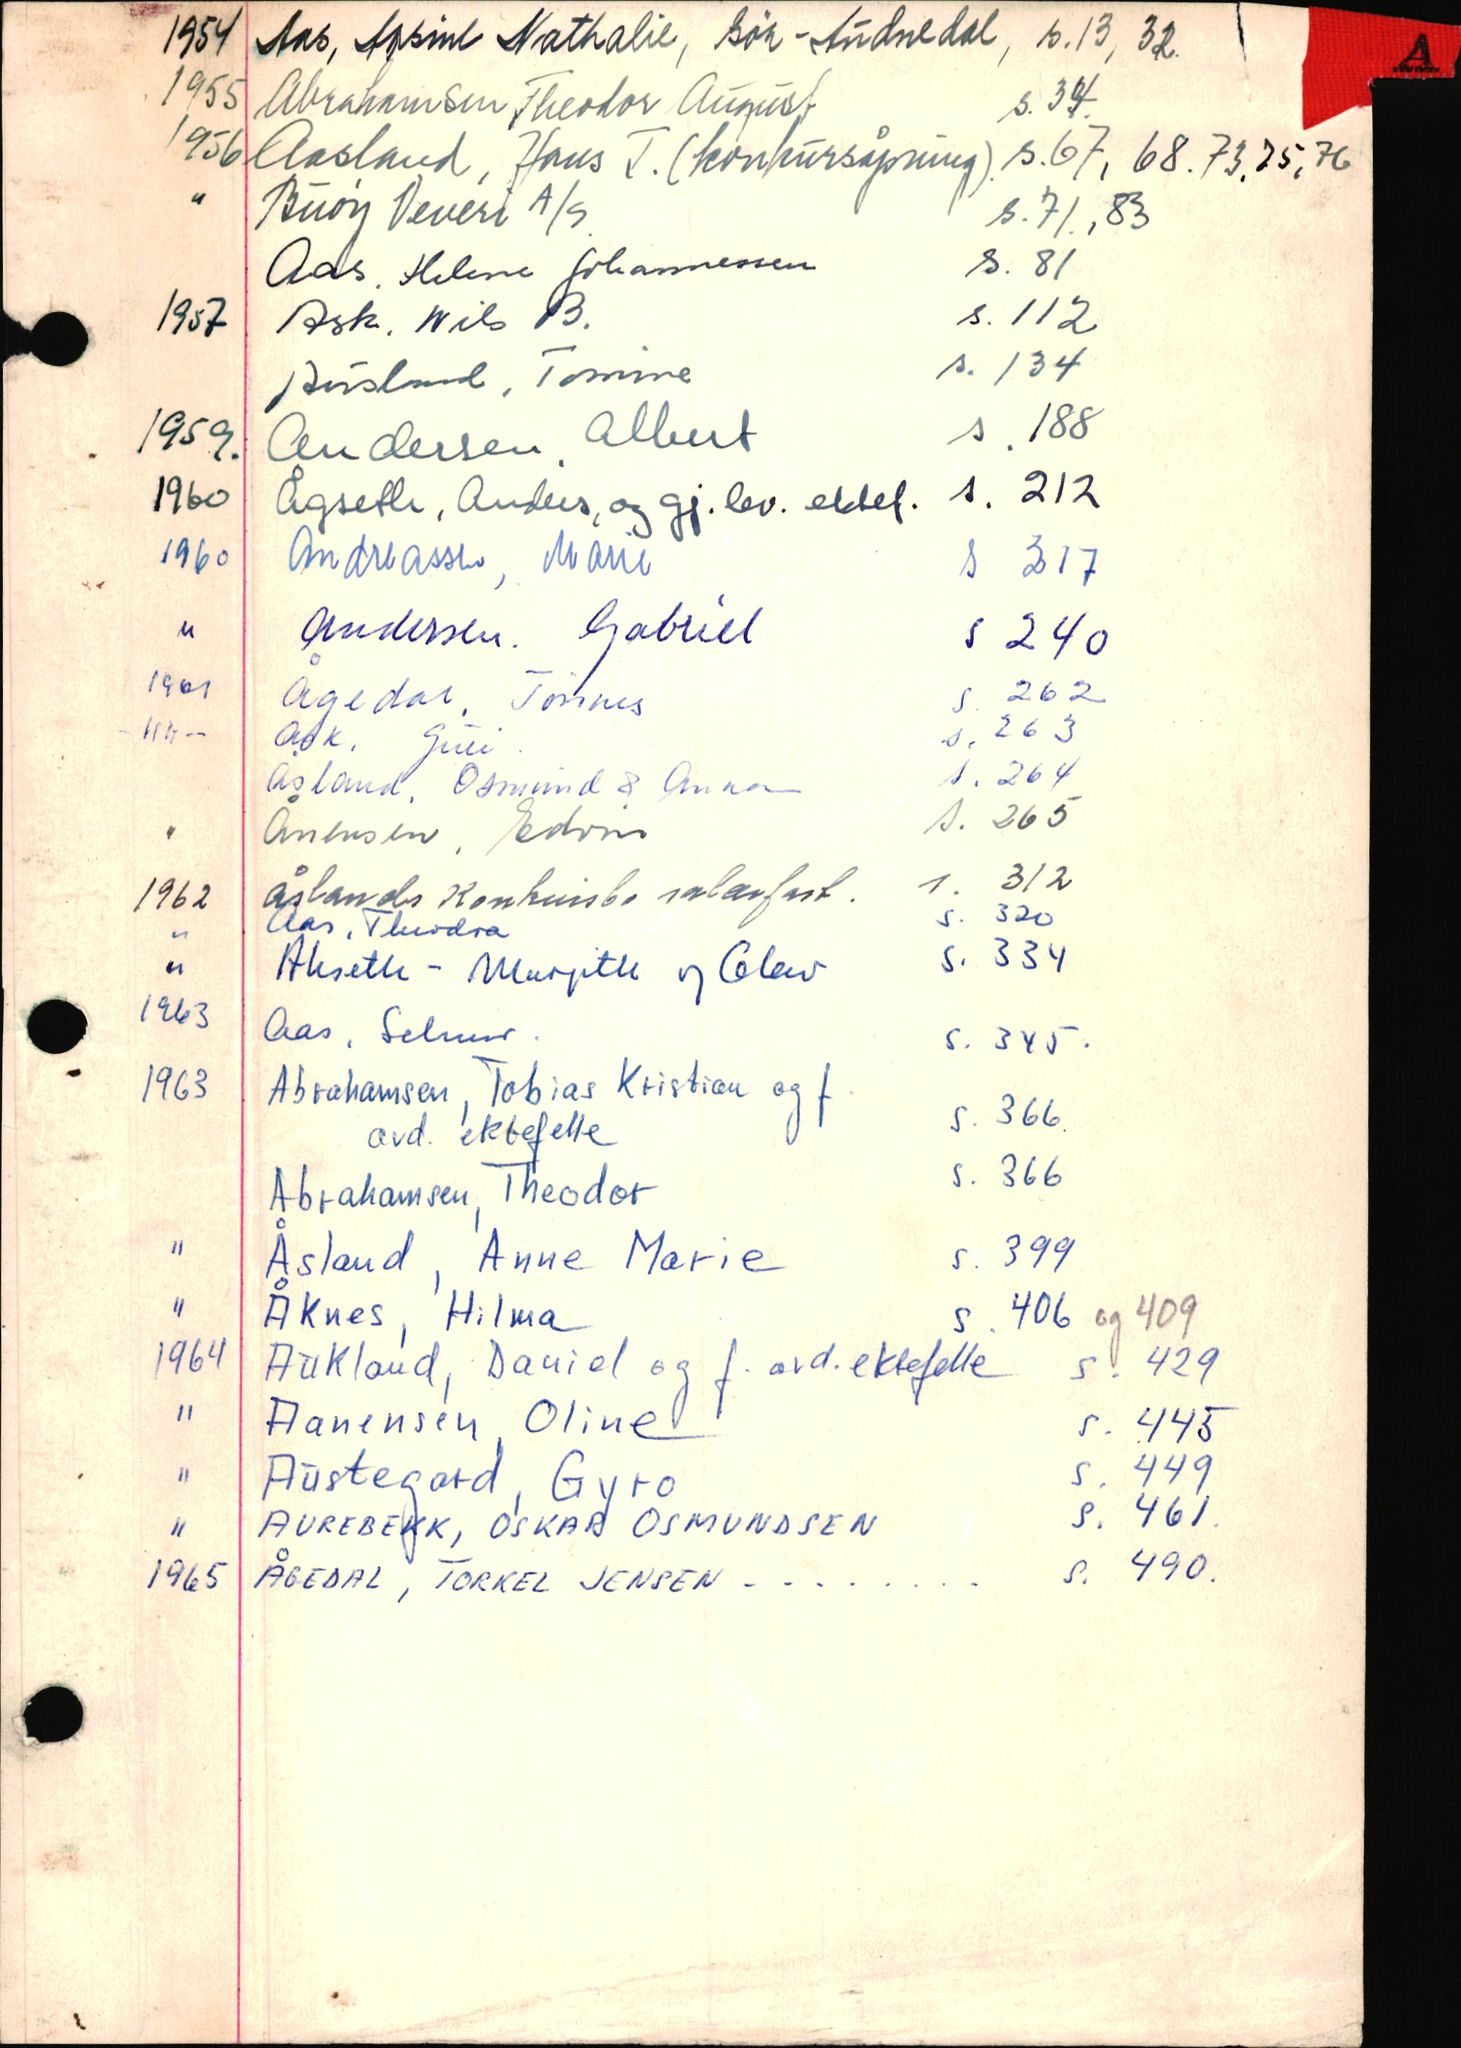 A
1954 Aas, Nathalie, Sör-Audnedal, s. 13, 32.
1955 Abrahamsen Theodor August s. 34.
1956 Aasland, Hans T. (konkursåpning) s. 67, 68. 73, 75, 76
" Veveri A/S. s. 71, 83
Aas. Helene Johannessen s. 81
1957 Ask. Nils B. s. 112
Ausland, Tomine s. 134
1959. Andersen, Albert s. 188
1960 Ågseth, Anders, og gj.lev. ektef. s. 212
1960 Andreassen, Marie s 217
" Andersen. Gabriel s 240
1961 Ågedal, Tönnes s. 262
-"- Ask, Guri. s. 263
Åsland, Osmund & Anna s. 264
" Ånensen, Edvin s. 265
1962 Åslands Konkursbo s. 312
" Aas, Theodra s. 320
" Akseth - Margith og Olav s. 334
1963 Aas, Selmer. s. 345.
1963 Abrahamsen, Tobias Kristian og f.
avd. ektefelle s. 366.
Abrahamsen, Theodor s. 366
" Åsland, Anne Marie s. 399
" Åknes, Hilma s. 406 og 409
1964 Aukland, Daniel og f. avd. ektefelle s. 429
" Aanensen, Oline s. 445
" Austegard, Gyro s. 449
" AUREBEKK, OSKAR OSMUNDSEN s. 461.
1965 ÅGEDAL, TORKEL JENSEN - - - - - - - - s. 490.